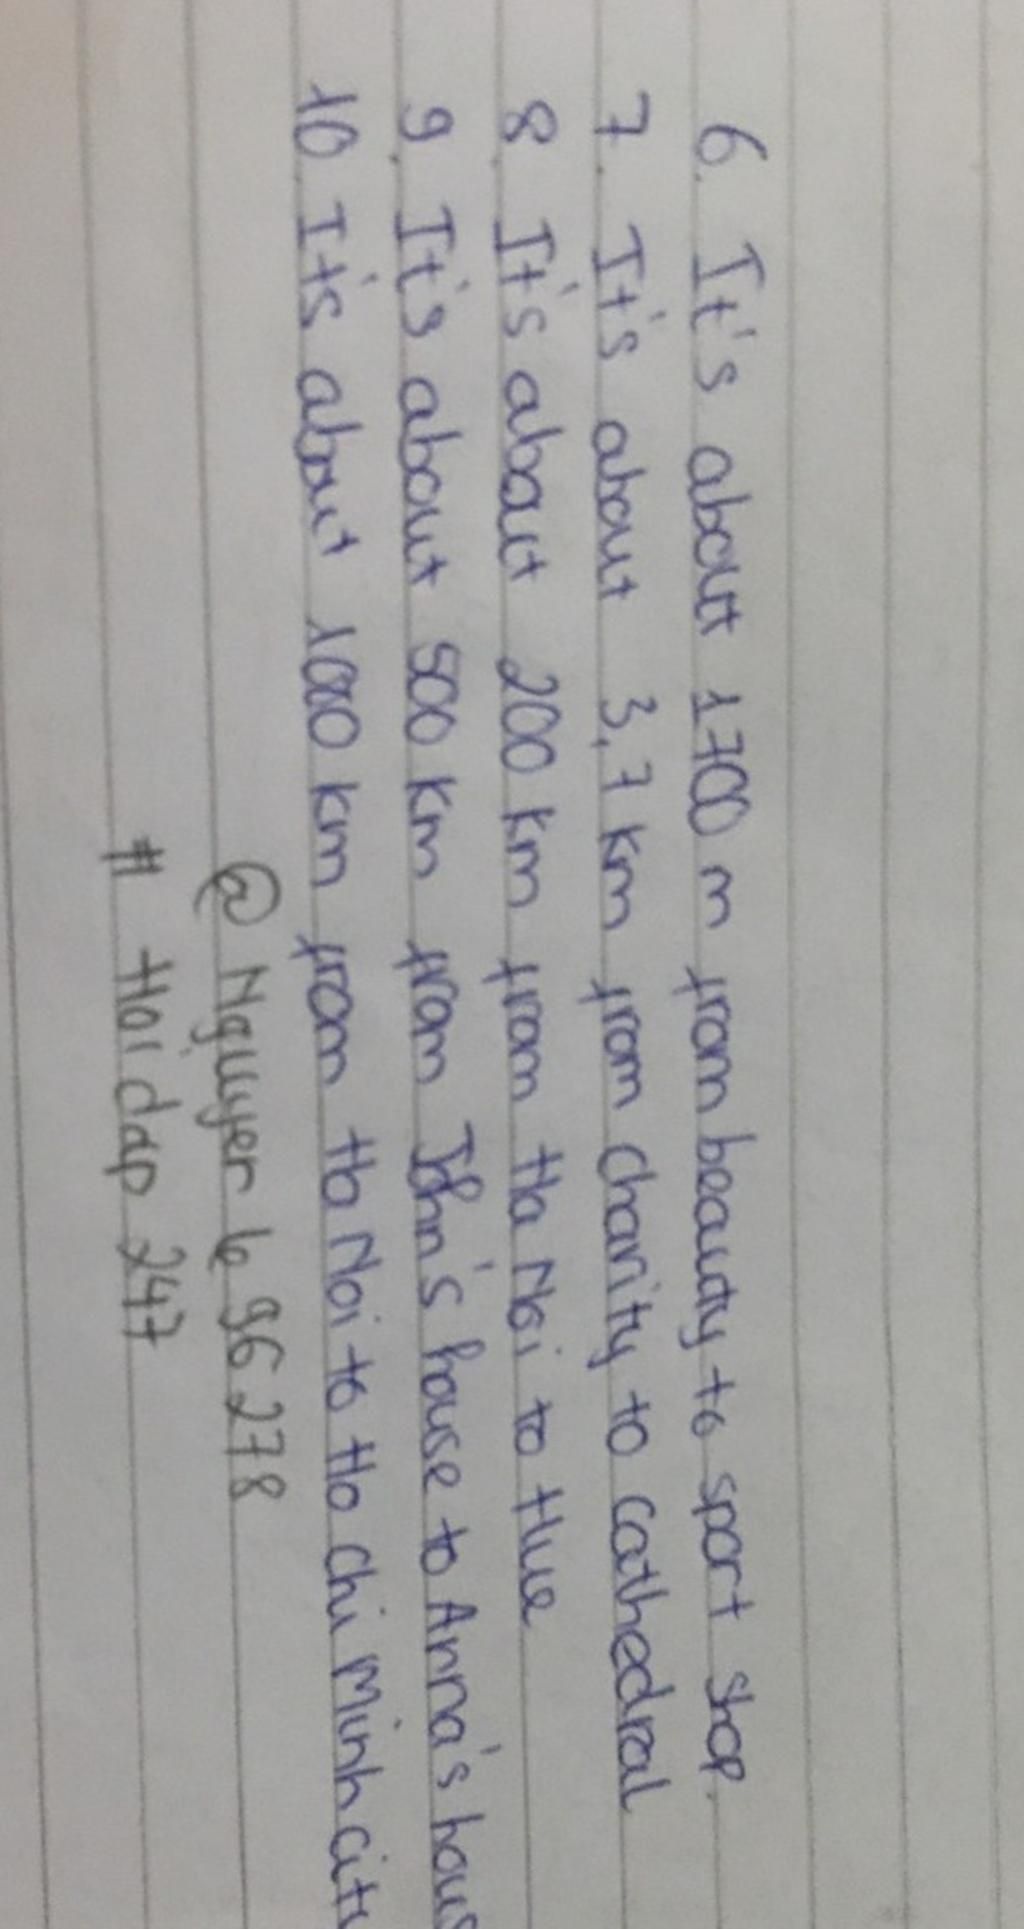 6. It's about 1700 m from beauty to sport shop.
7. It's about 3,7 km from charity to cathedral
8. It's about 200 km from Ha Noi to Hue
9. It's about 500 km from John's house to Anna's hous
10. It's about 1000 km from Ha Noi to Ho Chi Minh city
@ Nguyen 96278
# Hoidap 247